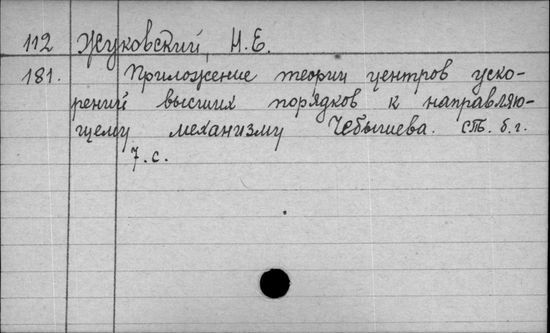 112 Жуковский, Н.Е.
181. Приложение теории центров уско-
рений высших порядков к направляю-
щему механизму Чебышева. ст. б.г.
7.с.